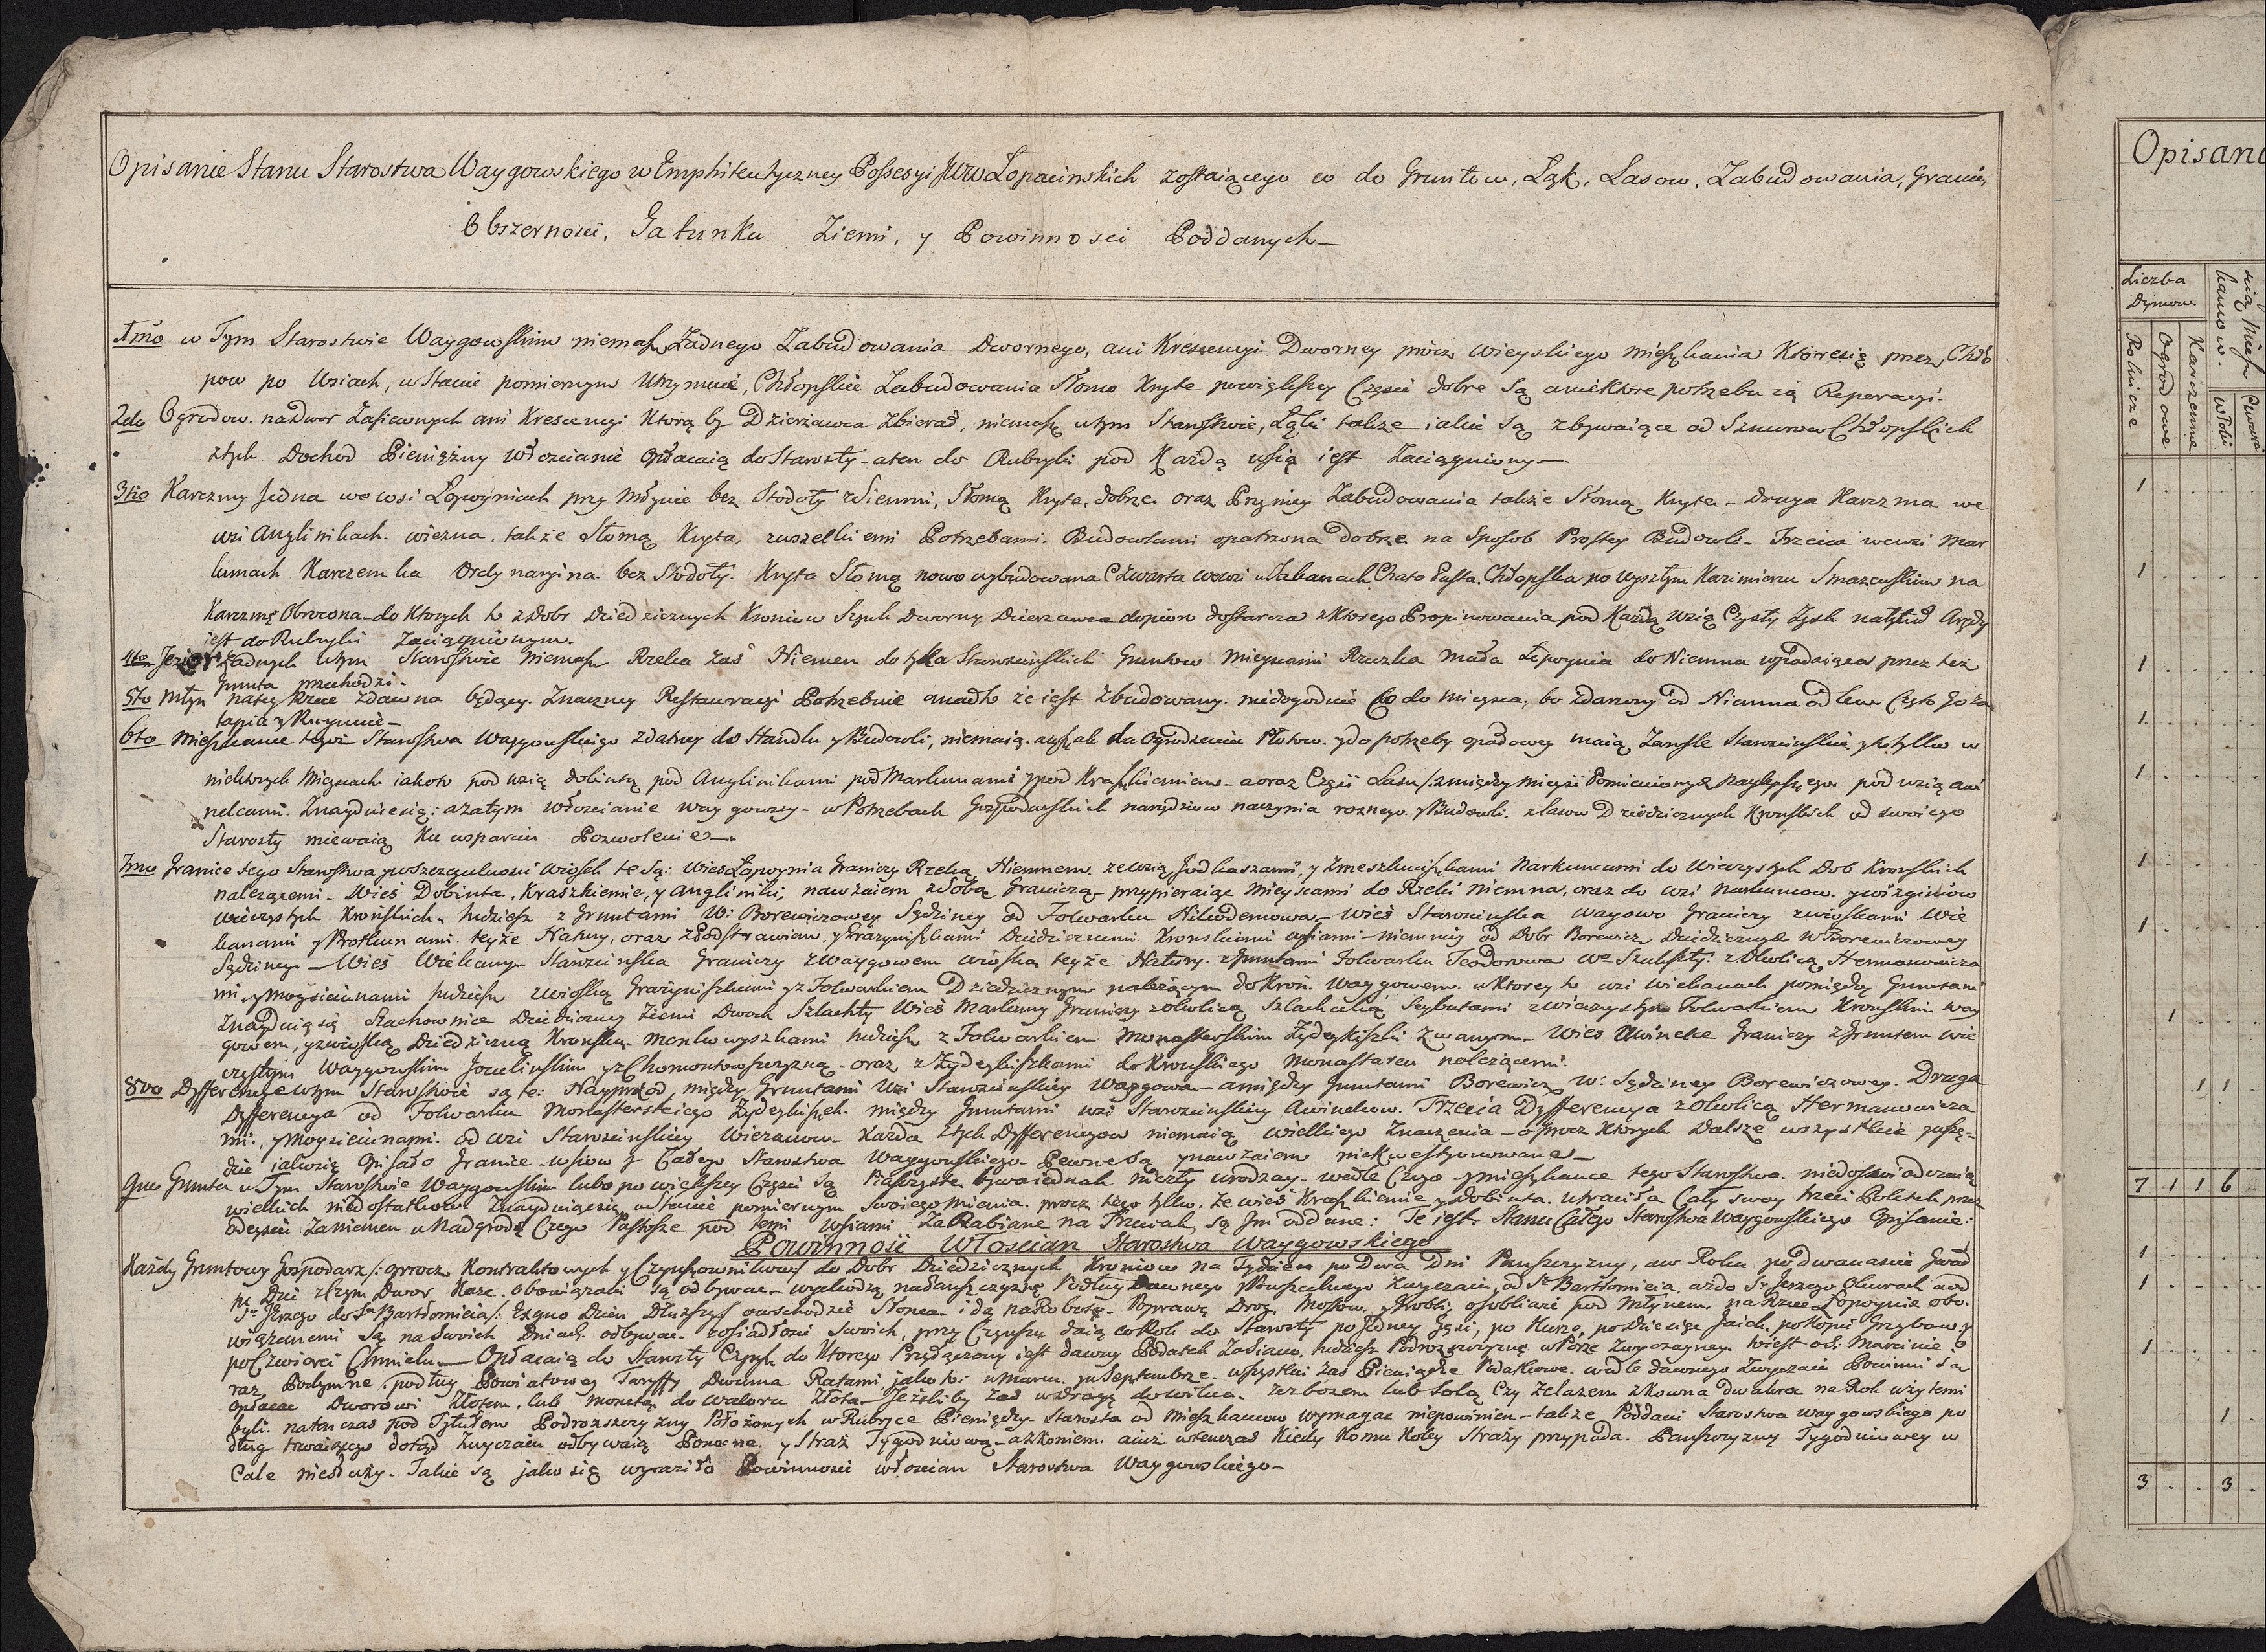 Opisanie Stanu Starostwa Waygowskiego w Emphiteutyczney Possesyi JWW Łopacinskich zostaiącego co do Gruntow, Łąk, Lasow, Zabudowania, Granic,
Obszernosci, Gatunku Ziemi, y Powinnosci Poddanych—
1mo w Tym Starostwie Waygowskim niemasz Żadnego Zabudowania Dwornego, ani Krescencyi Dworney procz wieyskiego mieszkania Ktore się przez Chło
pow po Wsiach, w Stanie pomiernym Utrzymuie, Chłopskie Zabudowania Słomo Kryte powiększey Części dobre są a niektore potrzebuią Reperacyi.
2do Ogrodow na Dwor Zasiewnych ani Krescencyi Ktorą by Dzierżawca Zbierał, niemasz w tym Starostwie, Łąki takze iakie są zbywaiące od Sznurow Chłopskich
z tych Dochod Pieniężny Włoscianie opłacaią do Starosty — a ten do Rubryki pod Każdą wsią iest Zaciągniony—.
3tio Karczmy Jedna we wsi Łopoyniach przy Młynie bez Stodoły z Sienmi, Słomą Kryta, dobrze oraz Przy niey Zabudowania także Słomą Kryte — druga Karczma we
wsi Anglinikach wiezna, takze Słomą Kryta, z wszelkiemi Potrzebami Budowlami opatrzona dobrze na Sposob Prostey Budowli — Trzecia we wsi Mar
kunach Karczemka Ordynaryina bez Stodoły Kryta Słomą nowo wybudowana Czwarta we wsi Chata Pusta Chłopska po wyszłym Kazimierzu na
Karczmę Obrocona — do Ktorych to z Dobr Dziedzicznych Kroniow Szynk Dworny Dzierzawca dopiero dostarcza z Ktorego Propinowania pod Każdą Wsią Czysty Zysk na Tytuł Arędy
iest do Rubryki Zaciągnionym.
4to Jezior żadnych w tym Starostwie niemasz Rzeka zaś Niemen dotyka Staroscinskich Gruntow mieyscami Rzeczka mała Łopoynia do Niemna wpadaiąca przez też
Grunta przechodzi—
5to Młyn na tey Rzece Zdawna będący. Znaczney Restauracyi Potrzebuie a nadto że iest zbudowany niedogodnie Co do mieysca, bo od Niemna Często Go za
tapia y
6to Mieszkance tegoż Starostwa Waygowskiego zdatney do Handlu y Budowli, niemaią, a do Ogrodzenia Płotow y do potrzeby opałowey maią Zarosle Staroscinskie y to tylko w
niektorych Mieyscach iakoto pod wsią dobintą pod Anglinikami pod Markunami y pod Kraszkieniem — a oraz Części Lasu Zmiędzy mieysc Pomienionych naylepszego pod wsią awi
nelcami Znayduie się: a zatym Włoscianie waygowscy — w Potrzebach Gospodarskich narzędziow naczynia roznego y Budowli z lasow Dziedzicznych Kronskich od swoiego
Starosty miewaią Ku wsparciu Pozwolenie—.
7mo Granice tego Starostwa poszczegulnosci wiosek te są: Wies Łopoynia Graniczy Rzeką Niemnem, z wsią Jodkaszami, y Zmeszkuciszkami Narkuncami do Wieczystych Dob Kronskich
należącemi — Wieś Dobinta, Kraszkiemie, y Angliniki, nawzaiem z Sobą Graniczą — przypieraiąc mieyscami do Rzeki Niemna, oraz do wsi
wieczystych Kronskich, tudziesz z Gruntami W: Borewiczowey Sędziney od Folwarku Nikodemowa — wieś Staroscinska waygowo Graniczy z wioskami Wie
kanami y teyże Natury, oraz z y Grażyniszkami Dziedzicznemi Kronskiemi wsiami — niemniey od Dobr Borewicz Dziedzicznych W Borewiczowey
Sędziney — Wieś Wiekany Staroscinska Graniczy z Waygowem wioską teyże Natury. z Gruntami Folwarku Teodorowa z Okolicą Hermanowicza
mi, y Moysieiunami tudziesz z wioską Grażyniszkami y z Folwarkiem Dziedzicznym należącym do Kroń. Waygowem. w Ktorey to wsi wiekanach pomiędzy Gruntami
Znayduią się Szachownice Dziedziczney Ziemi Dwoch Szlachty Wieś Markuny Graniczy z okolicą Szlachecką Seybutami z wieczystym Folwarkiem Kronskim way
gowem, y z wioską Dziedziczną Kronską Monkowyszkami tudziesz z Folwarkiem Monasterskim Zydeykiszki Zwanym — Wies Awinelce Graniczy z Gruntem wie
czystym Waygowskim y Chomontowszczyzną — oraz z Zydeykiszkami do Kronskiego Monastaru należącemi.
8vo Dyfferencye w tym Starostwie są te: Nayprzod, między Gruntami Wsi Staroscinskiey Waygowa — a między Gruntami Borewicz W: Sędziney Borewiczowey. Druga
Dyfferencya od Folwarku Monasterskiego Zydeykiszek między Gruntami wsi Staroscinskiey Awinelcow. Trzecia Dyfferencya z Okolicą Hermanowicza
mi, y Moysieiunami. od wsi Staroscinskiey Wiekanow — Każda z tych Dyfferencyow niemaią wielkiego Znaczenia — oprocz Ktorych Dalsze wszystkie
dzie iakosię Opisało Granice wsiow y Całego Starostwa Waygowskiego — Pewne są y nawzaiem niekwestyonowane—
9no Grunta w Tym Starostwie Waygowskim lubo po większey Części są Piaszczyste bywa iednak niezły urodzay — wedle Czego y mieszkance tego Starostwa niedoswiadczaią
wielkich niedostatkow Znayduią się w Stanie pomiernym Swoiego mienia. procz tego tylko, ze wieś Kraszkiemie y Dobinta, utraciła Cały swoy trzeci Poletek przez
odeyscie Zaniemen w Nadgrodę Czego Pastosze pod temi wsiami Zarabiane na są Jm oddane: Te iest Stanu Całego Starostwa Waygowskiego Opisanie:
Powinnosć Włoscian Starostwa Waygowskiego
Każdy Gruntowy Gospodarz /: oprocz Kontraktowych y Czynszownikow :/ do Dobr Dziedzicznych Kroniow na Tydzień po Dwa Dni Panszczyzny, a w Roku po dwanascie Gwał
Dni z Dwor Każe, obowiązani są odbywac — wychodzą na Panszczyznę Podług Dawnego y Zwyczaiu, od Sgo Bartłomieia, aż do Sgo Jerzego od
Jerzego do Sgo Bartłomieia /: Dzień Dłuższy o wschodzie Słonca — idą na Robotę — Poprawę Drog Mostow, y Grobli, osobliwie pod Młynem na Rzece Łopoynie obo.
wiązanemi są na Swoich Dniach odbywac. z osiadłosci Swoich, przy Czynszu daią co Rok do Starosty po Jedney Gęsi, po Kurze, po dziesięc Jaiek, po Kopie Grzybow y
po Czwierci Chmielu — Opłacaią do Starosty Czynsz do Ktorego Przyłączony iest dawny Podatek tudziesz Podroższczyznę w Porze Zwyczayney to iest od S. Marcina o
raz Podymne podług Powiatowey Taryffy Dwuma Ratami, iako to: w Marcu y Septembrze. wszystkie zaś Pieniądze Podatkowe wedle dawnego Zwyczaiu Powinni są
opłacac Dworowi Złotem, lub monetą do waloru Złota — Jeżeliby zaś w drogę do wilna ze zbożem lub Solą Czy Żelazem z Kowna dwakroc na Rok użytemi
byli. natenczas pod Tytułem Podrozszczyzny Położonych w Rubryce Pieniędzy Starosta od Mieszkancow wymagac niepowinien — takze Poddani Starostwa waygowskiego po
dług trwaiącego dotąd Zwyczaiu odbywaią Ponocne y Straż Tygodniową — a z Koniem. a iuż wtenczas Kiedy Komu Koley Straży przypada. Panszczyzny Tygodniowey w
Cale niesłuży. Takie są iako się wyraziło Powinnosci włoscian Starostwa Waygowskiego—
Opisan
Liczba
Dymow.
Rolnicze
Ogrodowe
Karczemne
7 1 1 6
3 . . 3